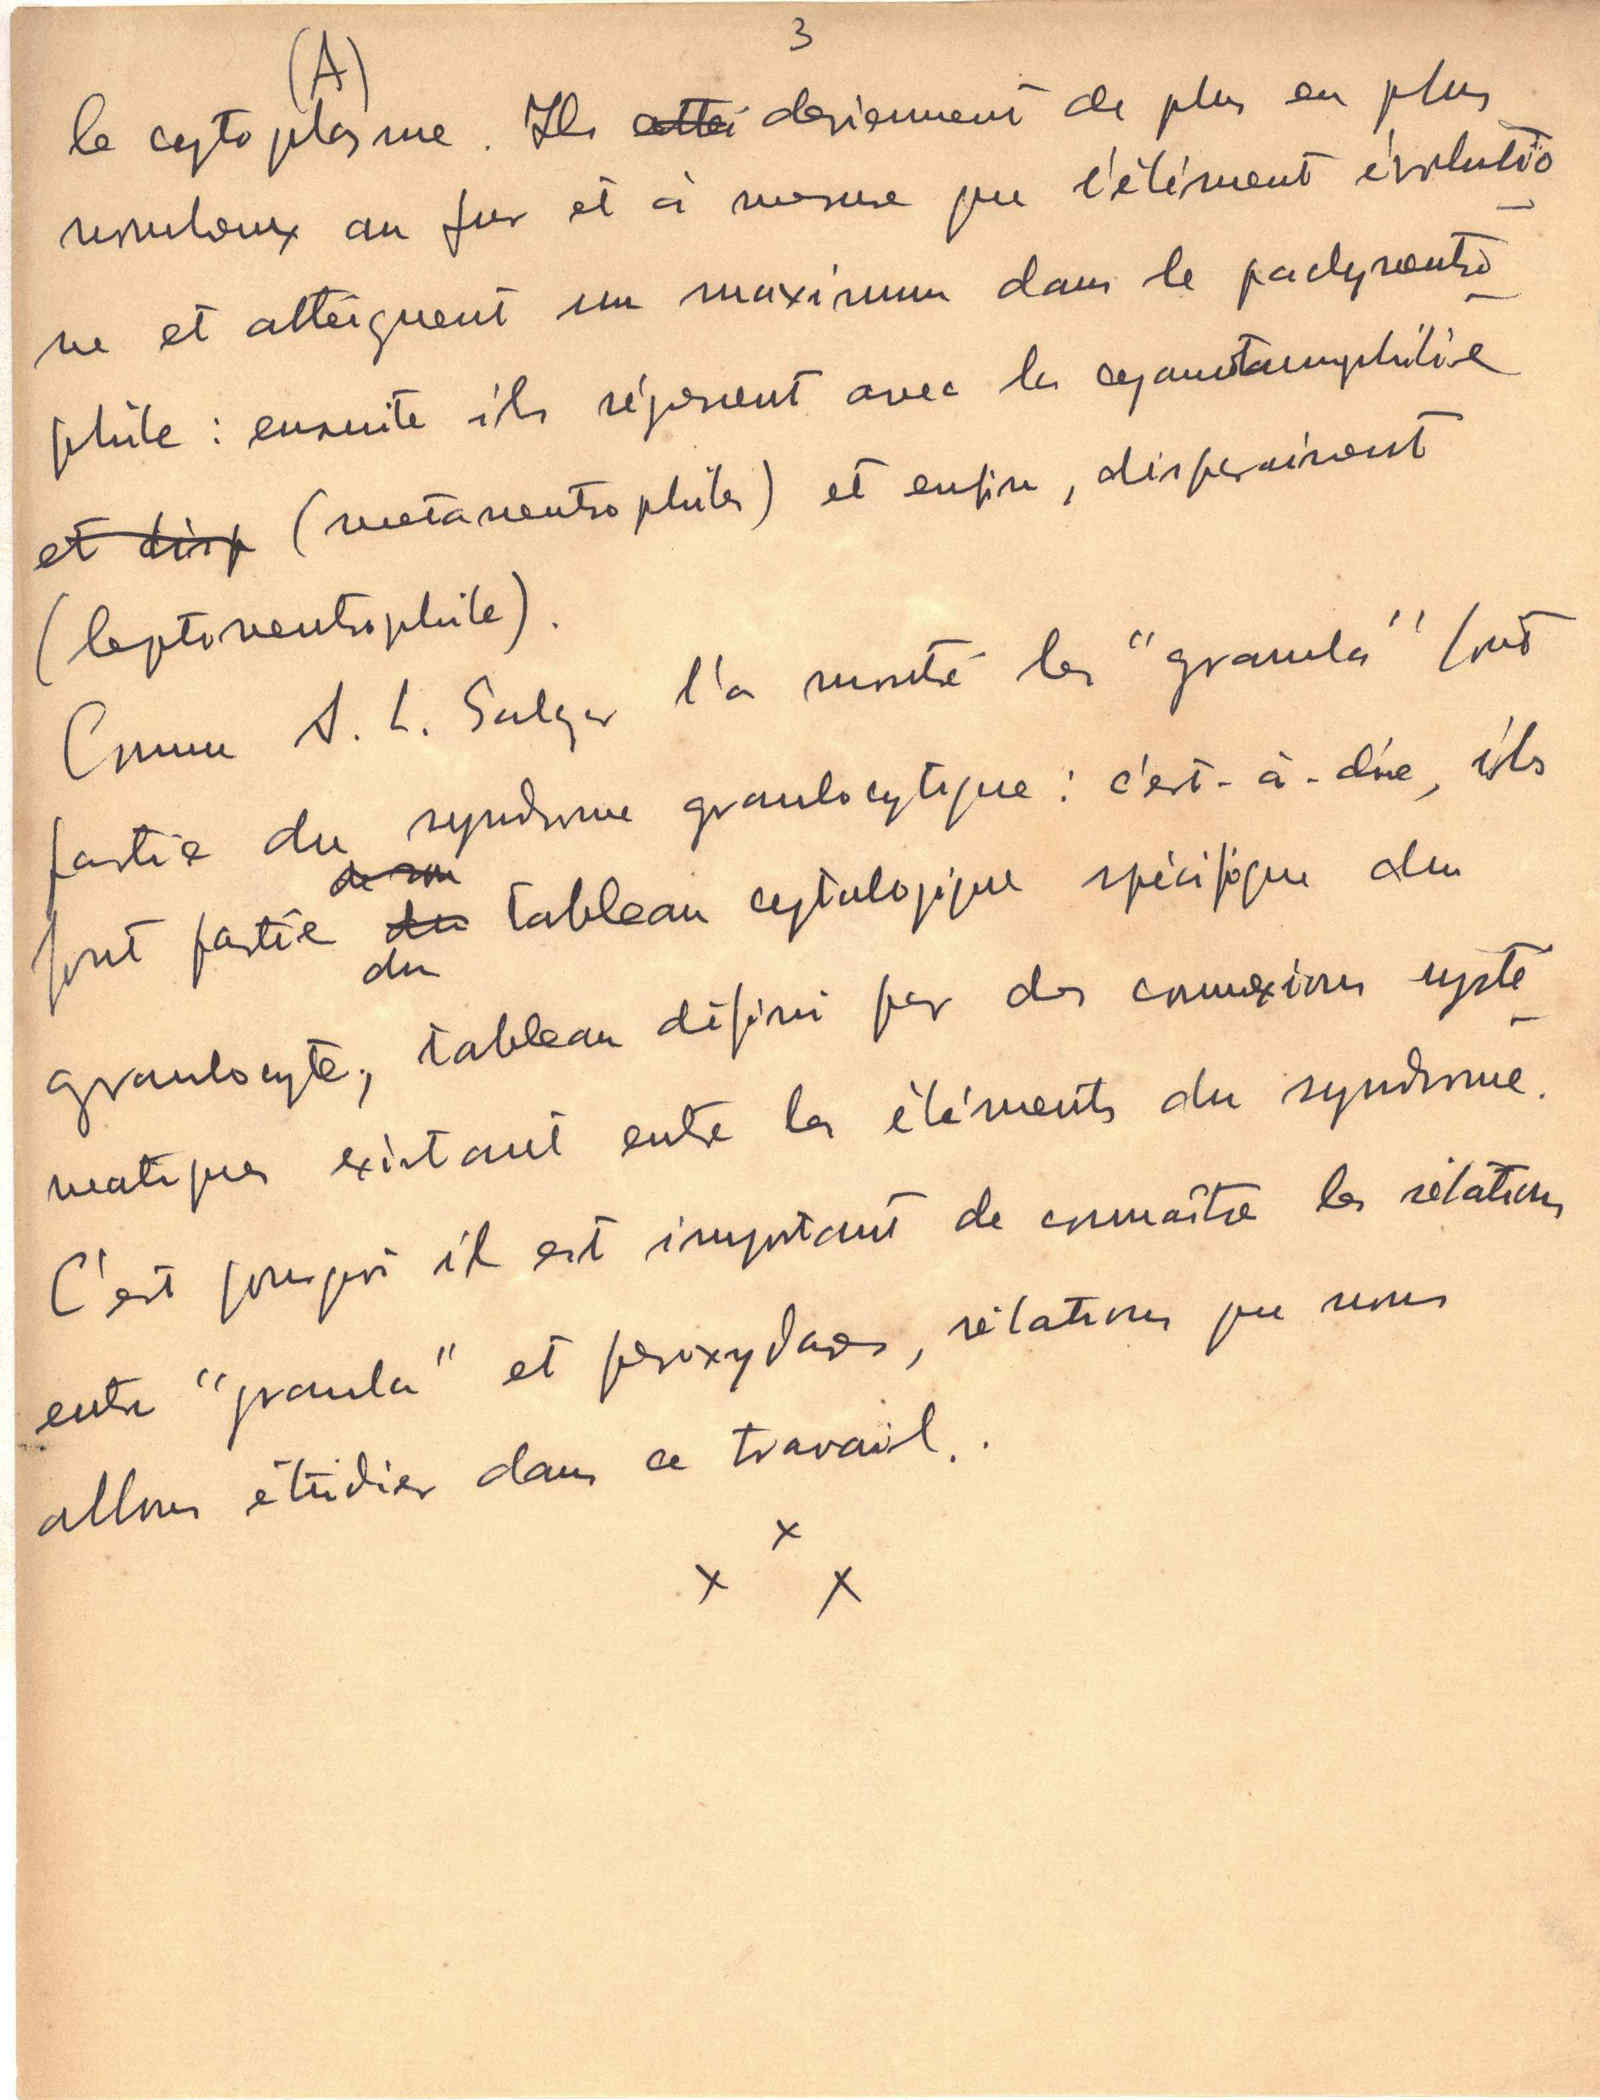 3
(A)
le cytoplasme. Ils attei deviennent de plus en plus
nombreux au fur et à mesure que l'élément évolutio
ne et atteignent un maximum dans le pachyneutro
phile : ensuite ils régressent avec la
et disp (metaneutrophiles) et enfin, disparaissent
(leptoneutrophile).
Comme A. L. Salger l'a montré les "granula" font
partie du syndrome granulocytique : c'est-à-dire, ils
de son
font partie du tableau cytologique spécifique du
du
granulocyte, tableau défini par des connexions systé
matiques existant entre les éléments du syndrome.
C'est pourquoi il est important de connaître les rélations
entre "granula" et peroxydases, rélations que nous
allons étudier dans ce travail.
x
x x